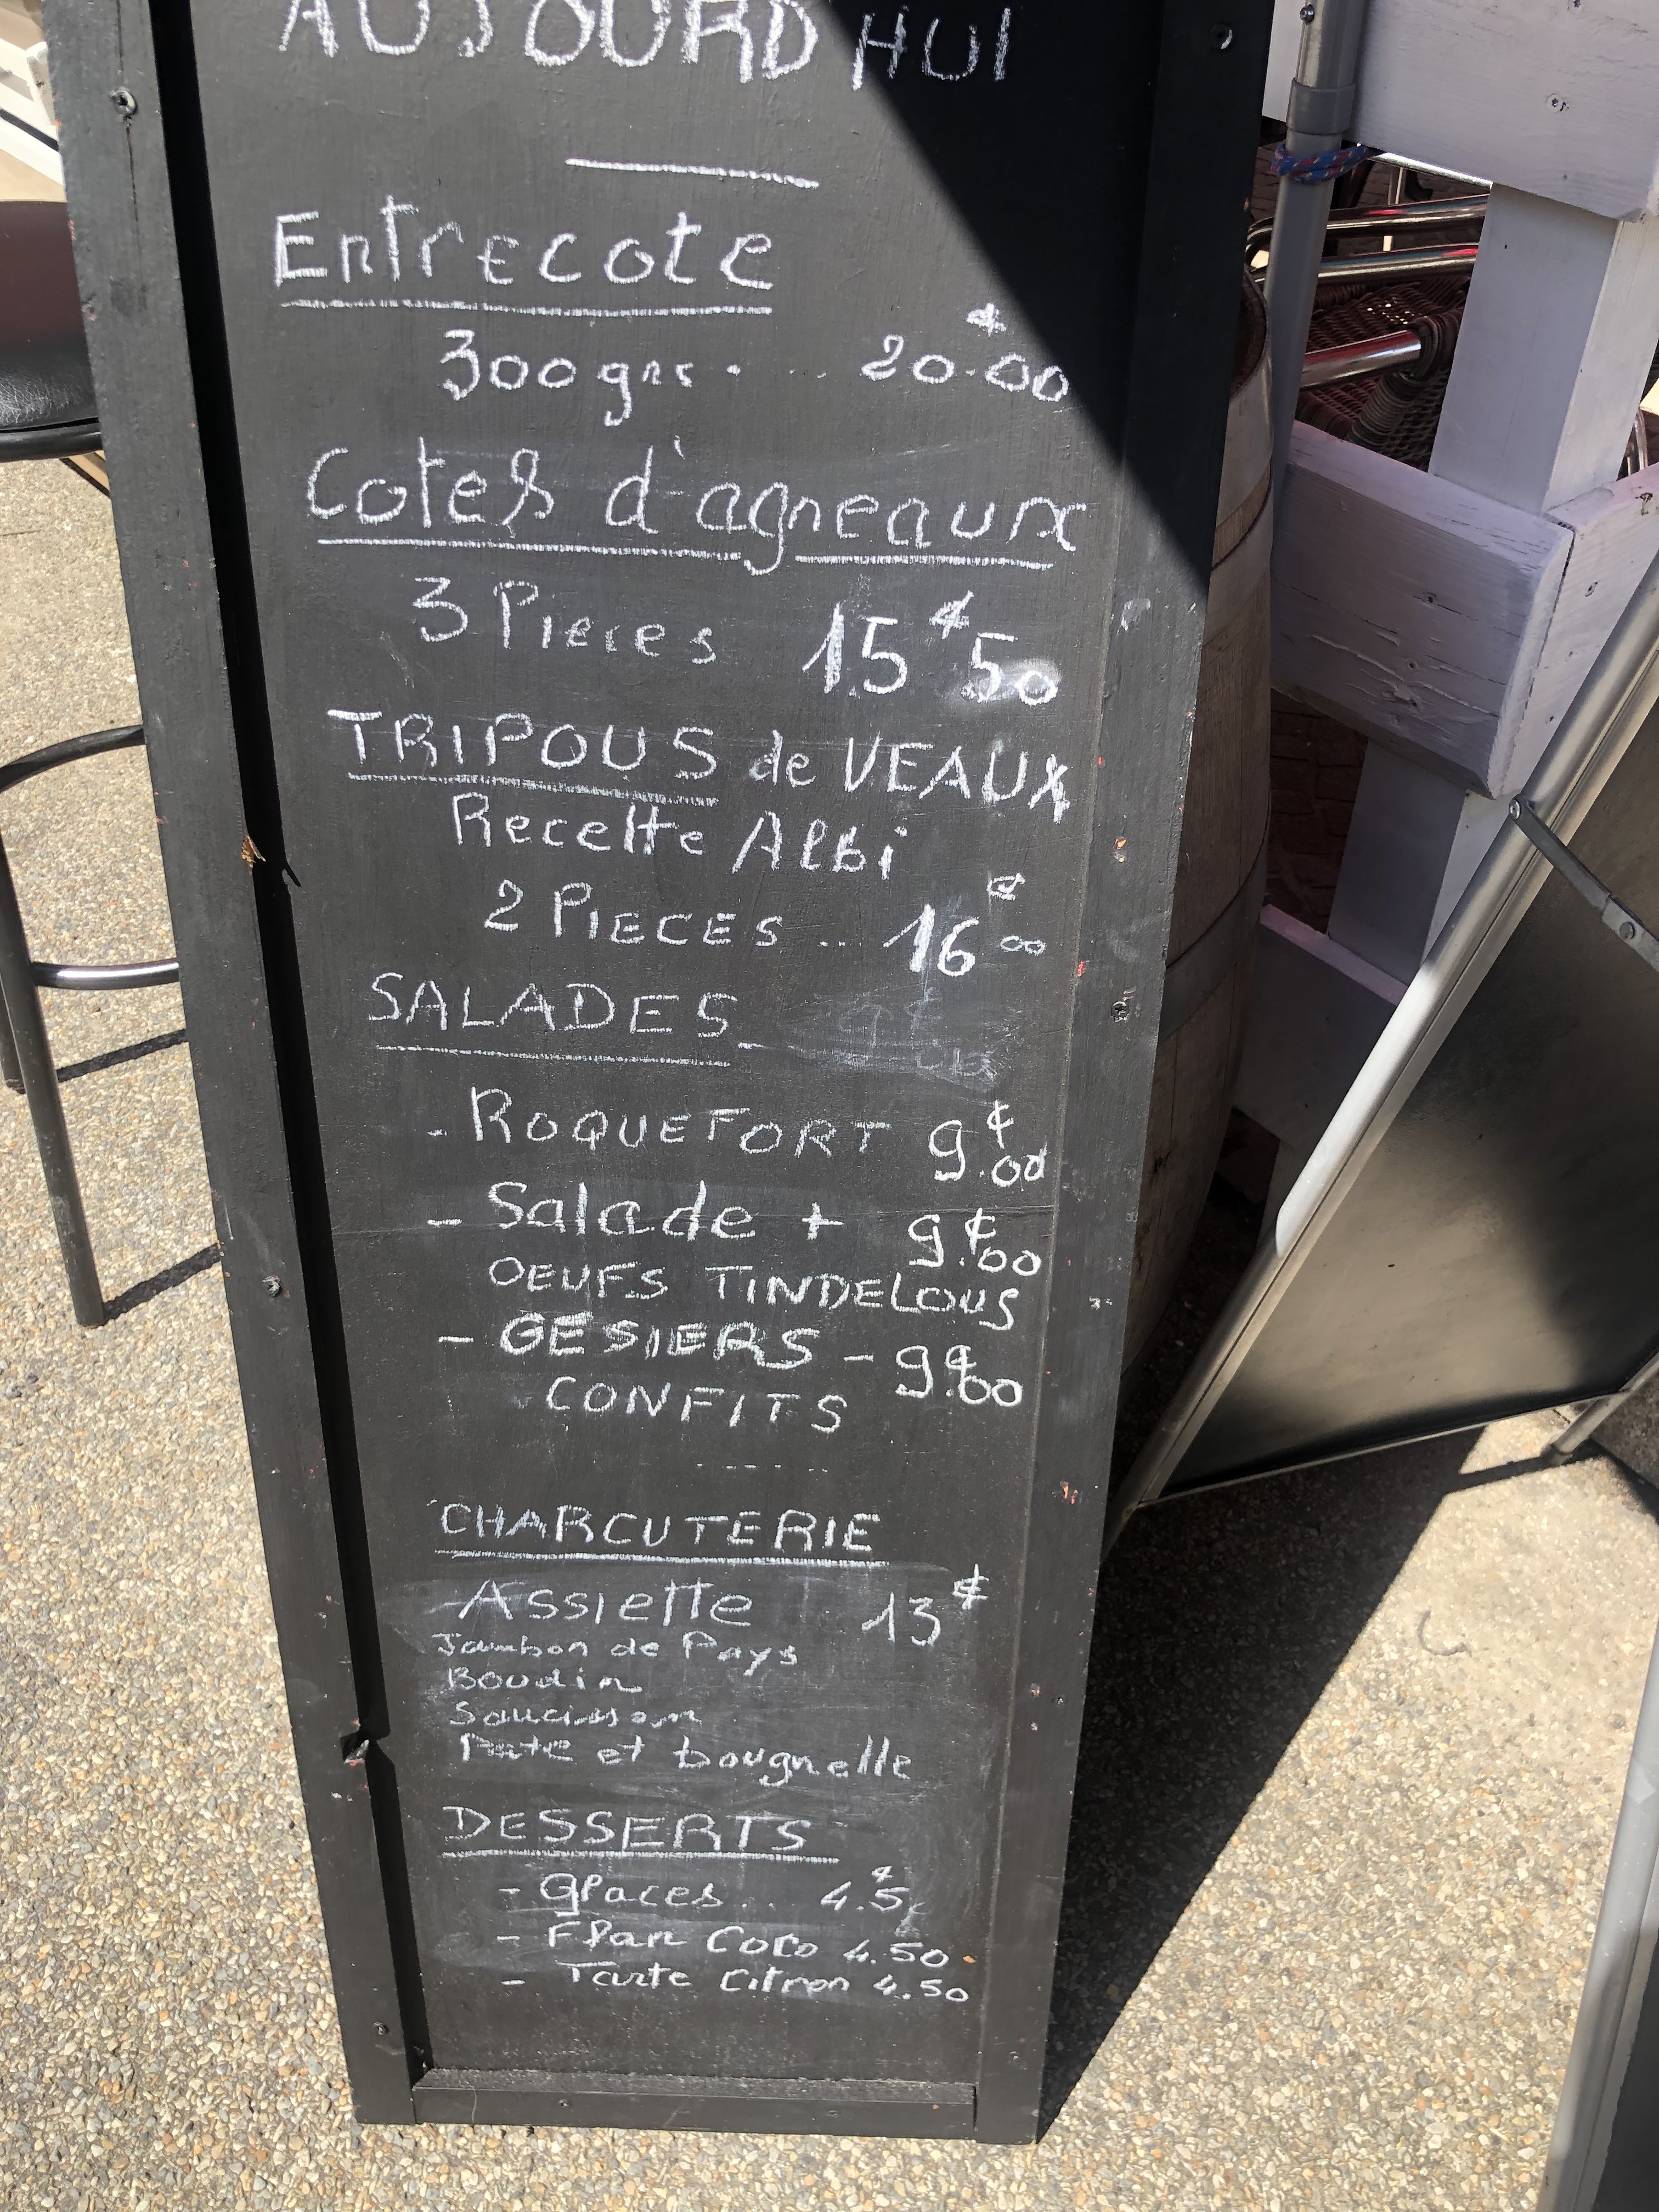 AUJOURD HUI
Entrecote
300 grs . . . 20.00 €
Cotes d'agneaux
3 Pieces 15 € 50
TRIPOUS de VEAUX
Recette Albi
2 PIECES .. 16 € 00
SALADES
- ROQUEFORT 9 €.00
- Salade + 9 €.00
OEUFS TINDELOUS
- GESIERS - 9 €.00
CONFITS
CHARCUTERIE
Assiette 13 €
Jambon de Pays
Boudin
Saucisson
Pate et bougnelle
DESSERTS
- Glaces .. 4.5 €
- Flan Coco 4.50
- Tarte Citron 4.50